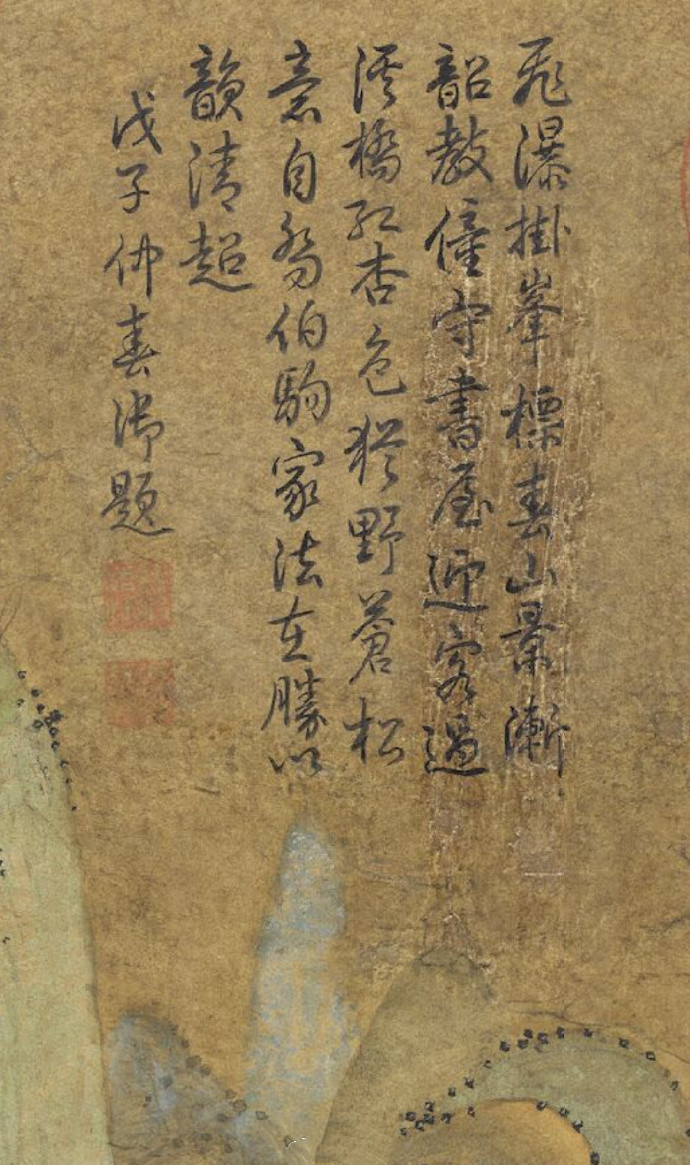 飛瀑掛峯標春山景漸
韶教僮守書屋迎客過
溪橋紅杏色猶野蒼松
意自喬伯駒家法在勝以
韻清超
戊子仲春御題